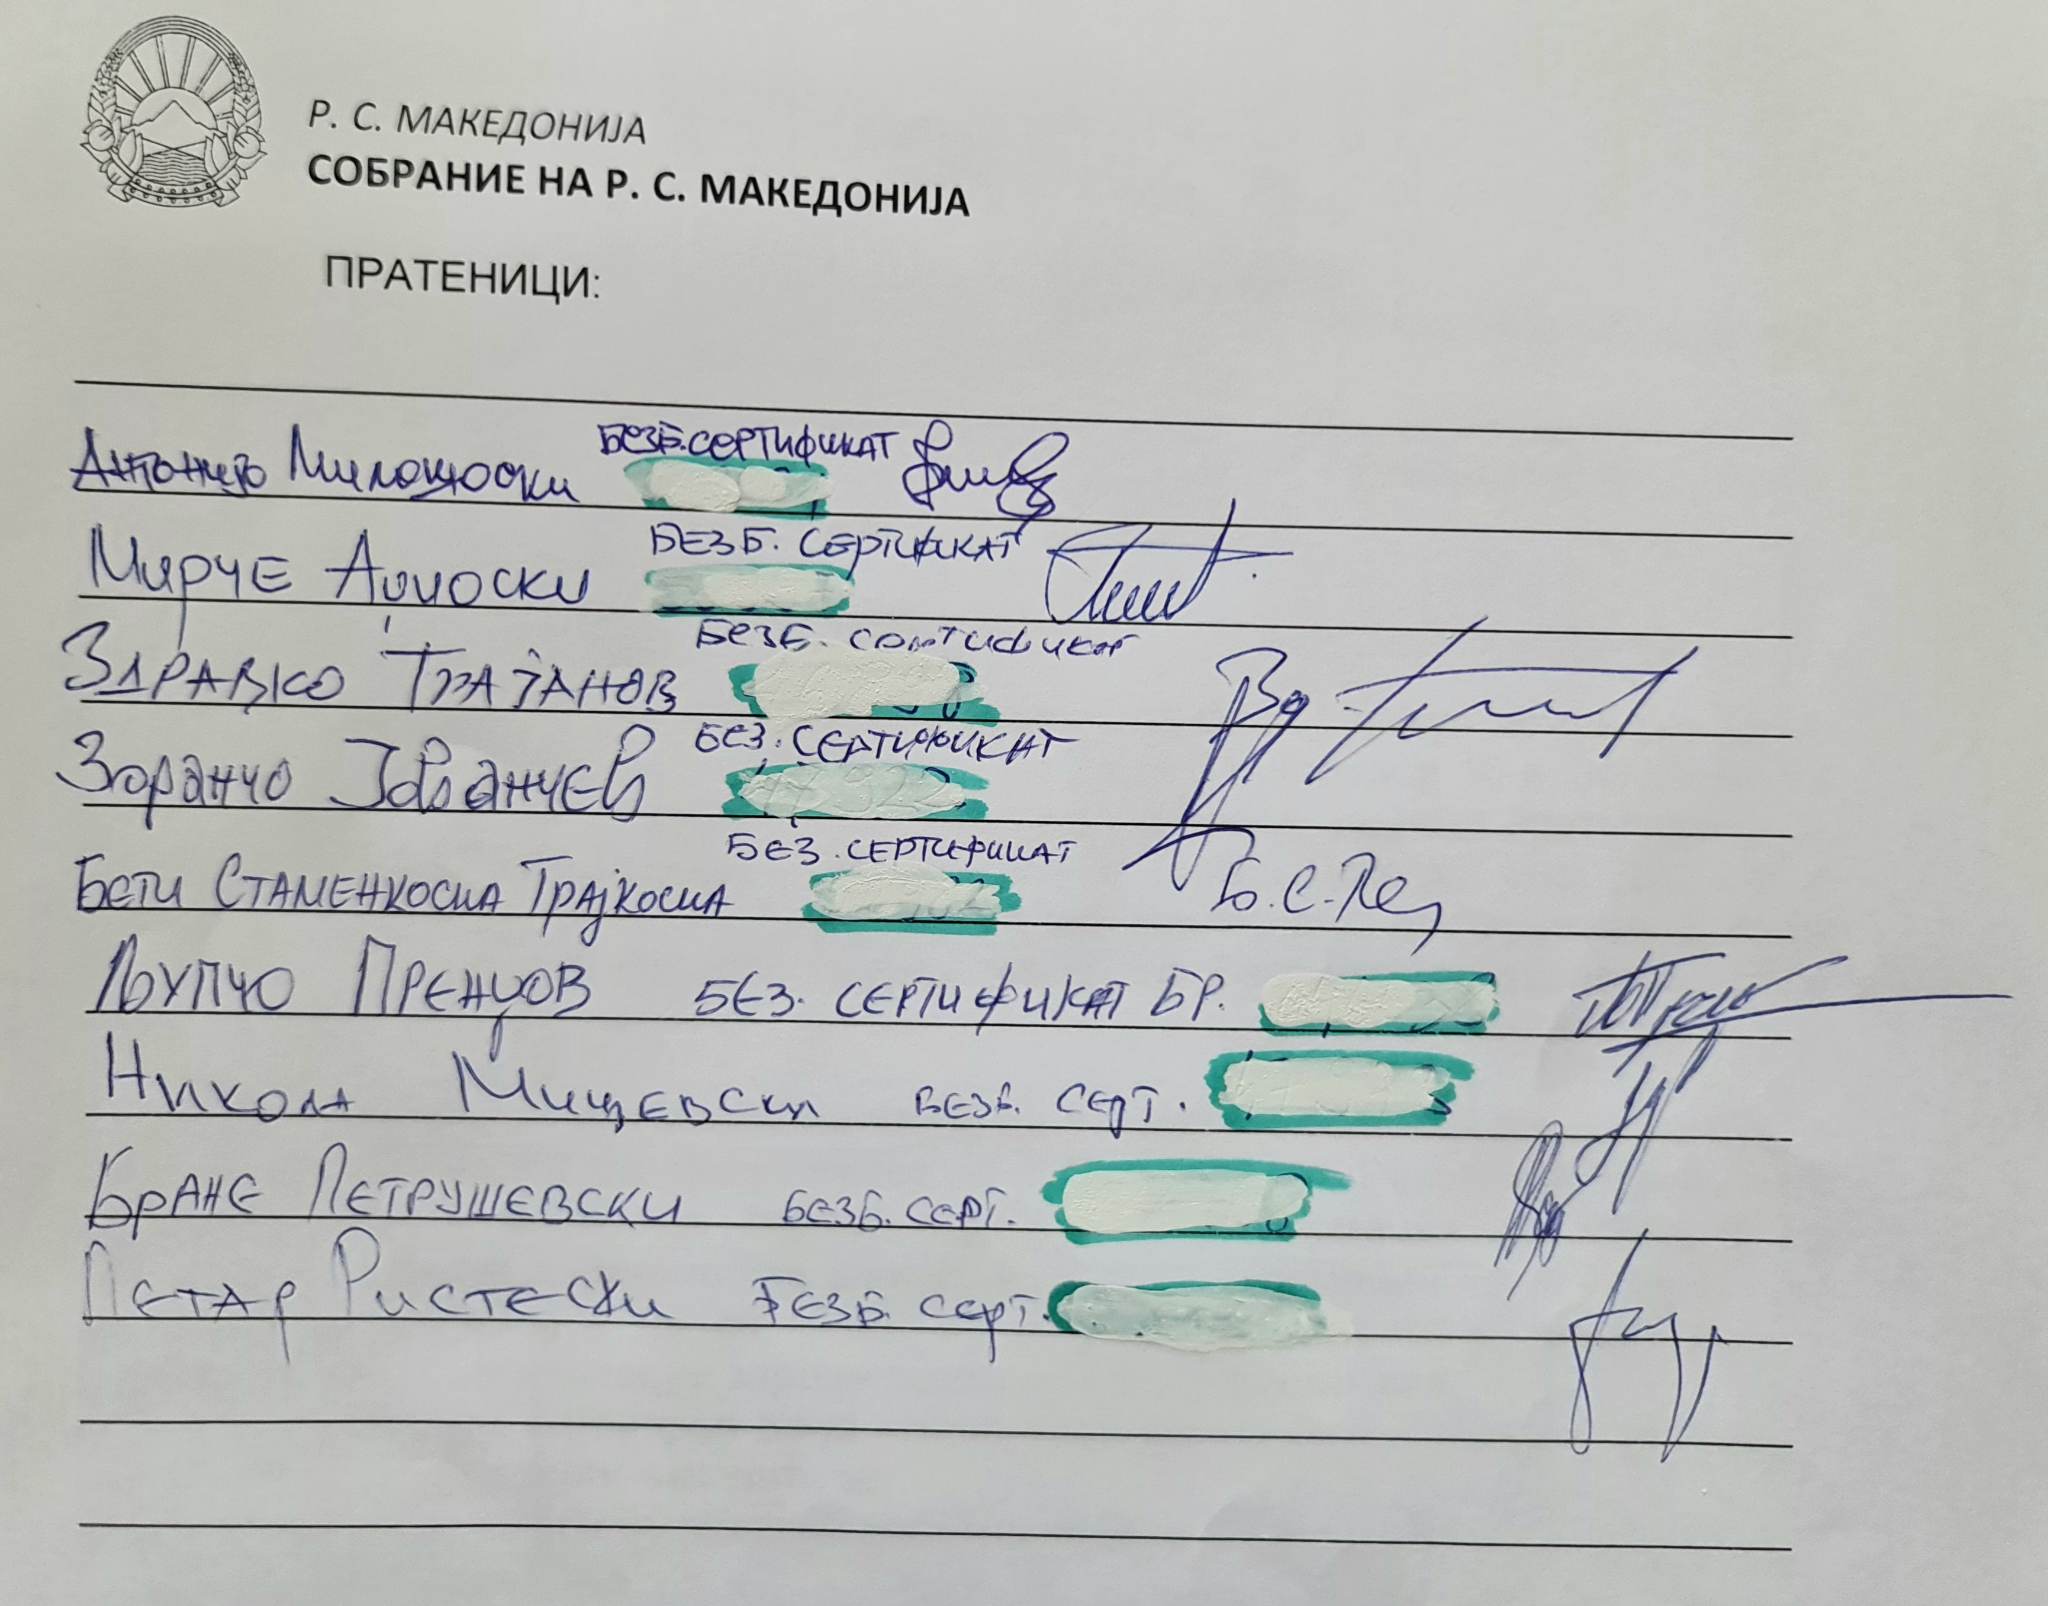 Р. С. МАКЕДОНИЈА
СОБРАНИЕ НА Р. С. МАКЕДОНИЈА
ПРАТЕНИЦИ:
Антонијо Милошоски БЕЗБ.СЕРТИФИКАТ
Мирче Аџиоски БЕЗБ. СЕРТИФИКАТ
Здравко Трајанов БЕЗБ. СЕРТИФИКАТ
Зоранчо Јованчев БЕЗ. СЕРТИФИКАТ
Бети Стаменкоска Трајкоска БЕЗ. СЕРТИФИКАТ Б.С.
Љупчо Пренџов БЕЗ. СЕРТИФИКАТ БР.
Никола Мицевски БЕЗБ. СЕРТ.
Бране Петрушевски БЕЗБ. СЕРТ.
Петар Ристески БЕЗБ. СЕРТ.